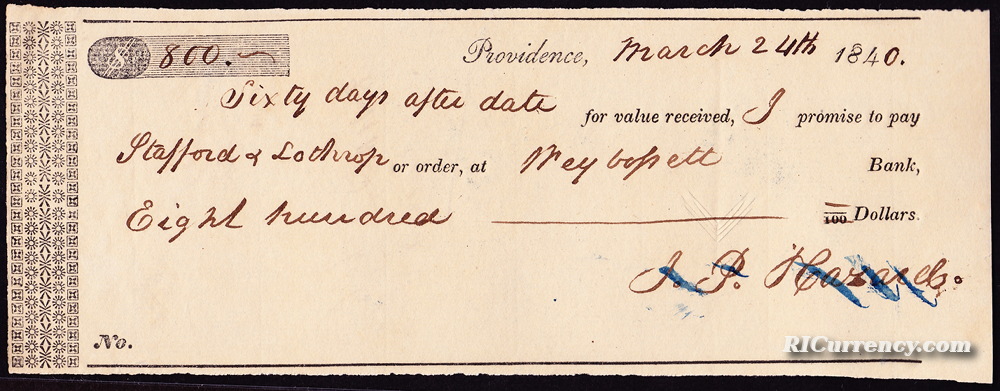 $ 800. Providence, March 24th 1840.
Sixty days after date for value received, I promise to pay
Stafford & Lothrop or order, at Weybossett Bank,
Eight hundred — /100 Dollars.
J. P. Hazard.
No.
RICurrency.com